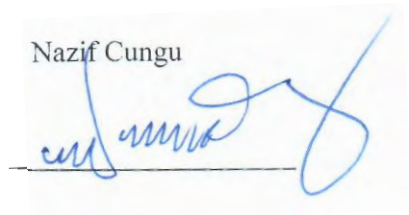 Nazif Cungu